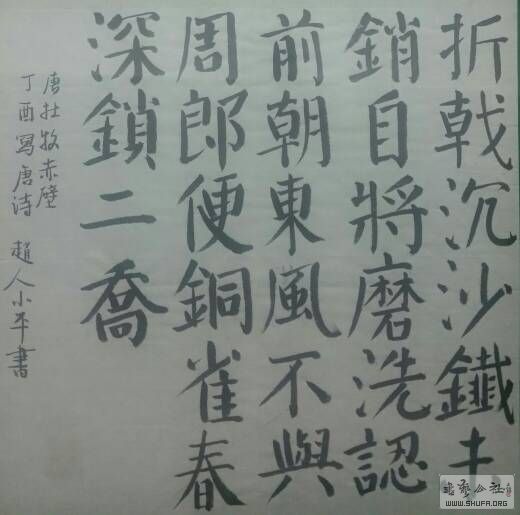 折戟沉沙鐵未
銷自將磨洗認
前朝東風不與
周郎便銅雀春
深鎖二喬
唐杜牧赤壁
丁酉寫唐诗 趙人小平書
书艺公社
WWW.SHUFA.ORG